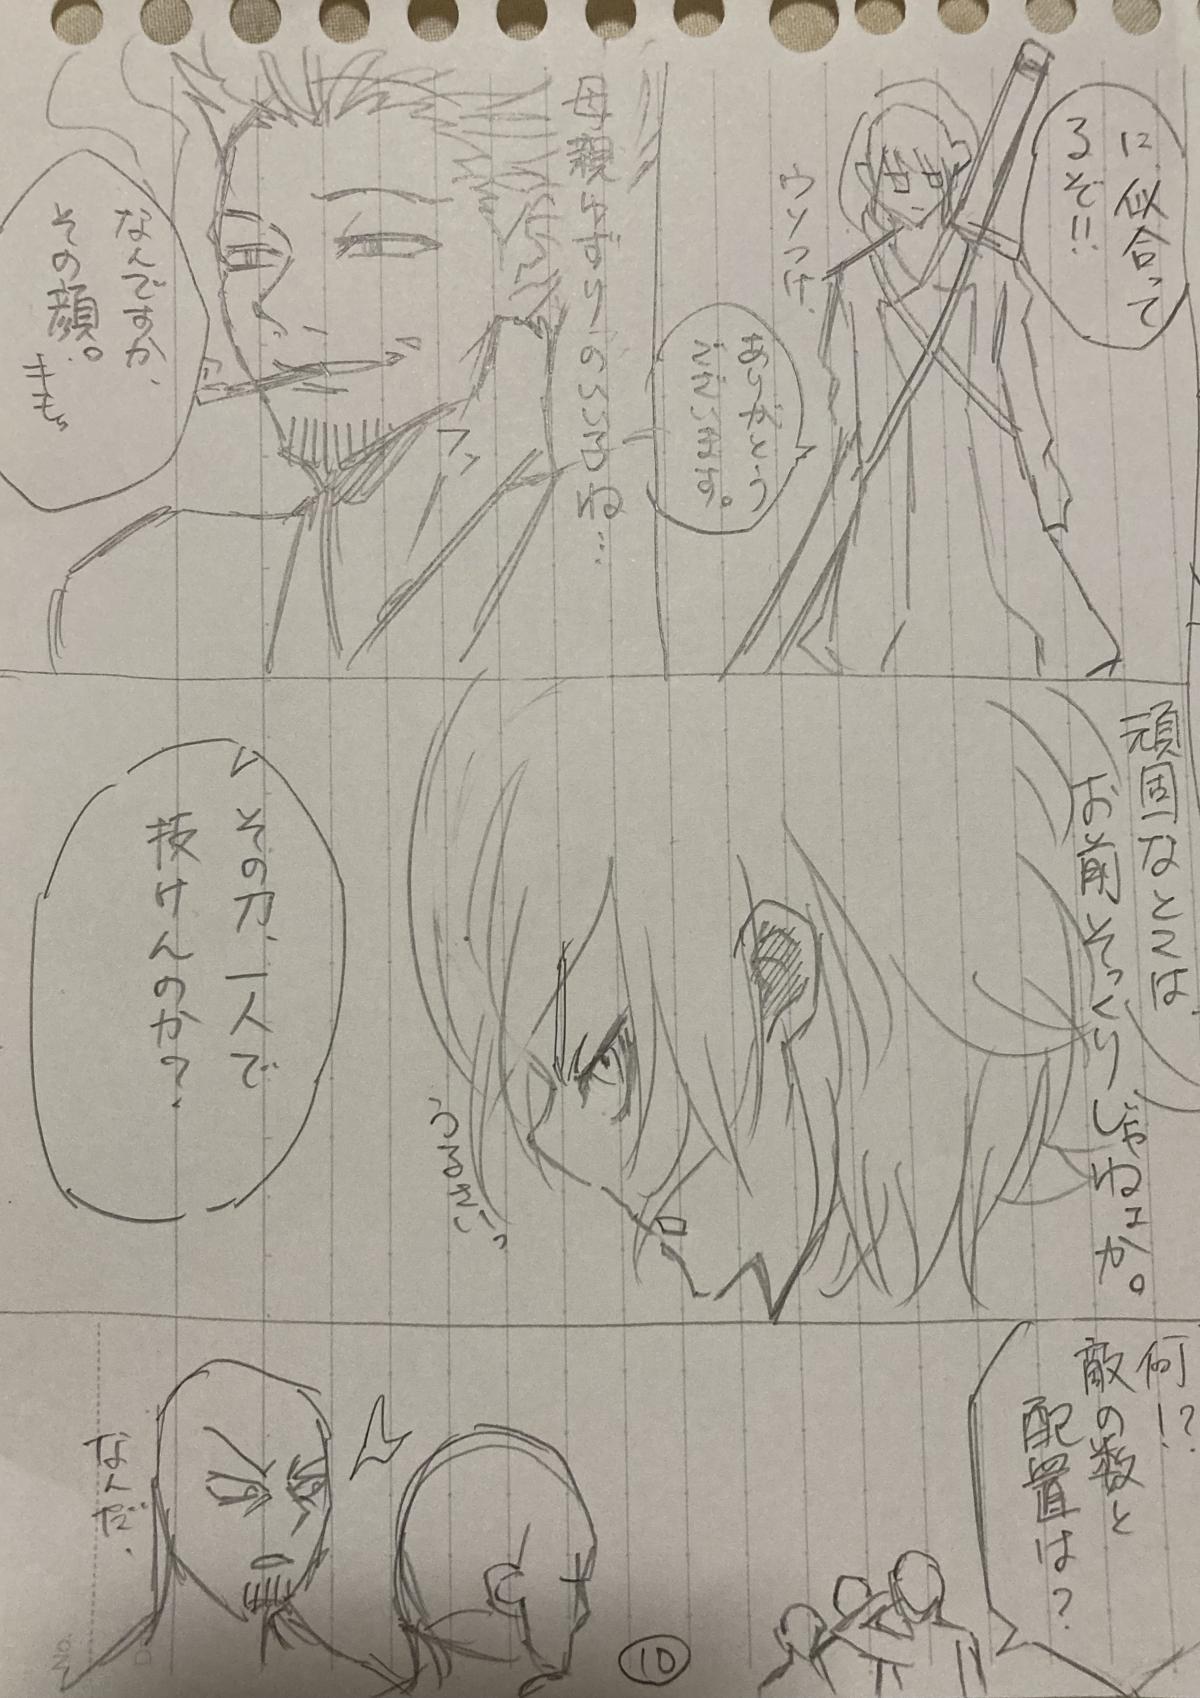 に似合って
るぞ!!
ウソつけ、
ありがとう
ございます。
母親ゆずりのいい
ね…
フッ
なんですか、
その顔。
キモっ
頑固なとこは
お前そっくりじゃねェか。
その刀、一人で
抜けんのか?
何!?
敵の数と
配置は?
なんだ、
10
No.